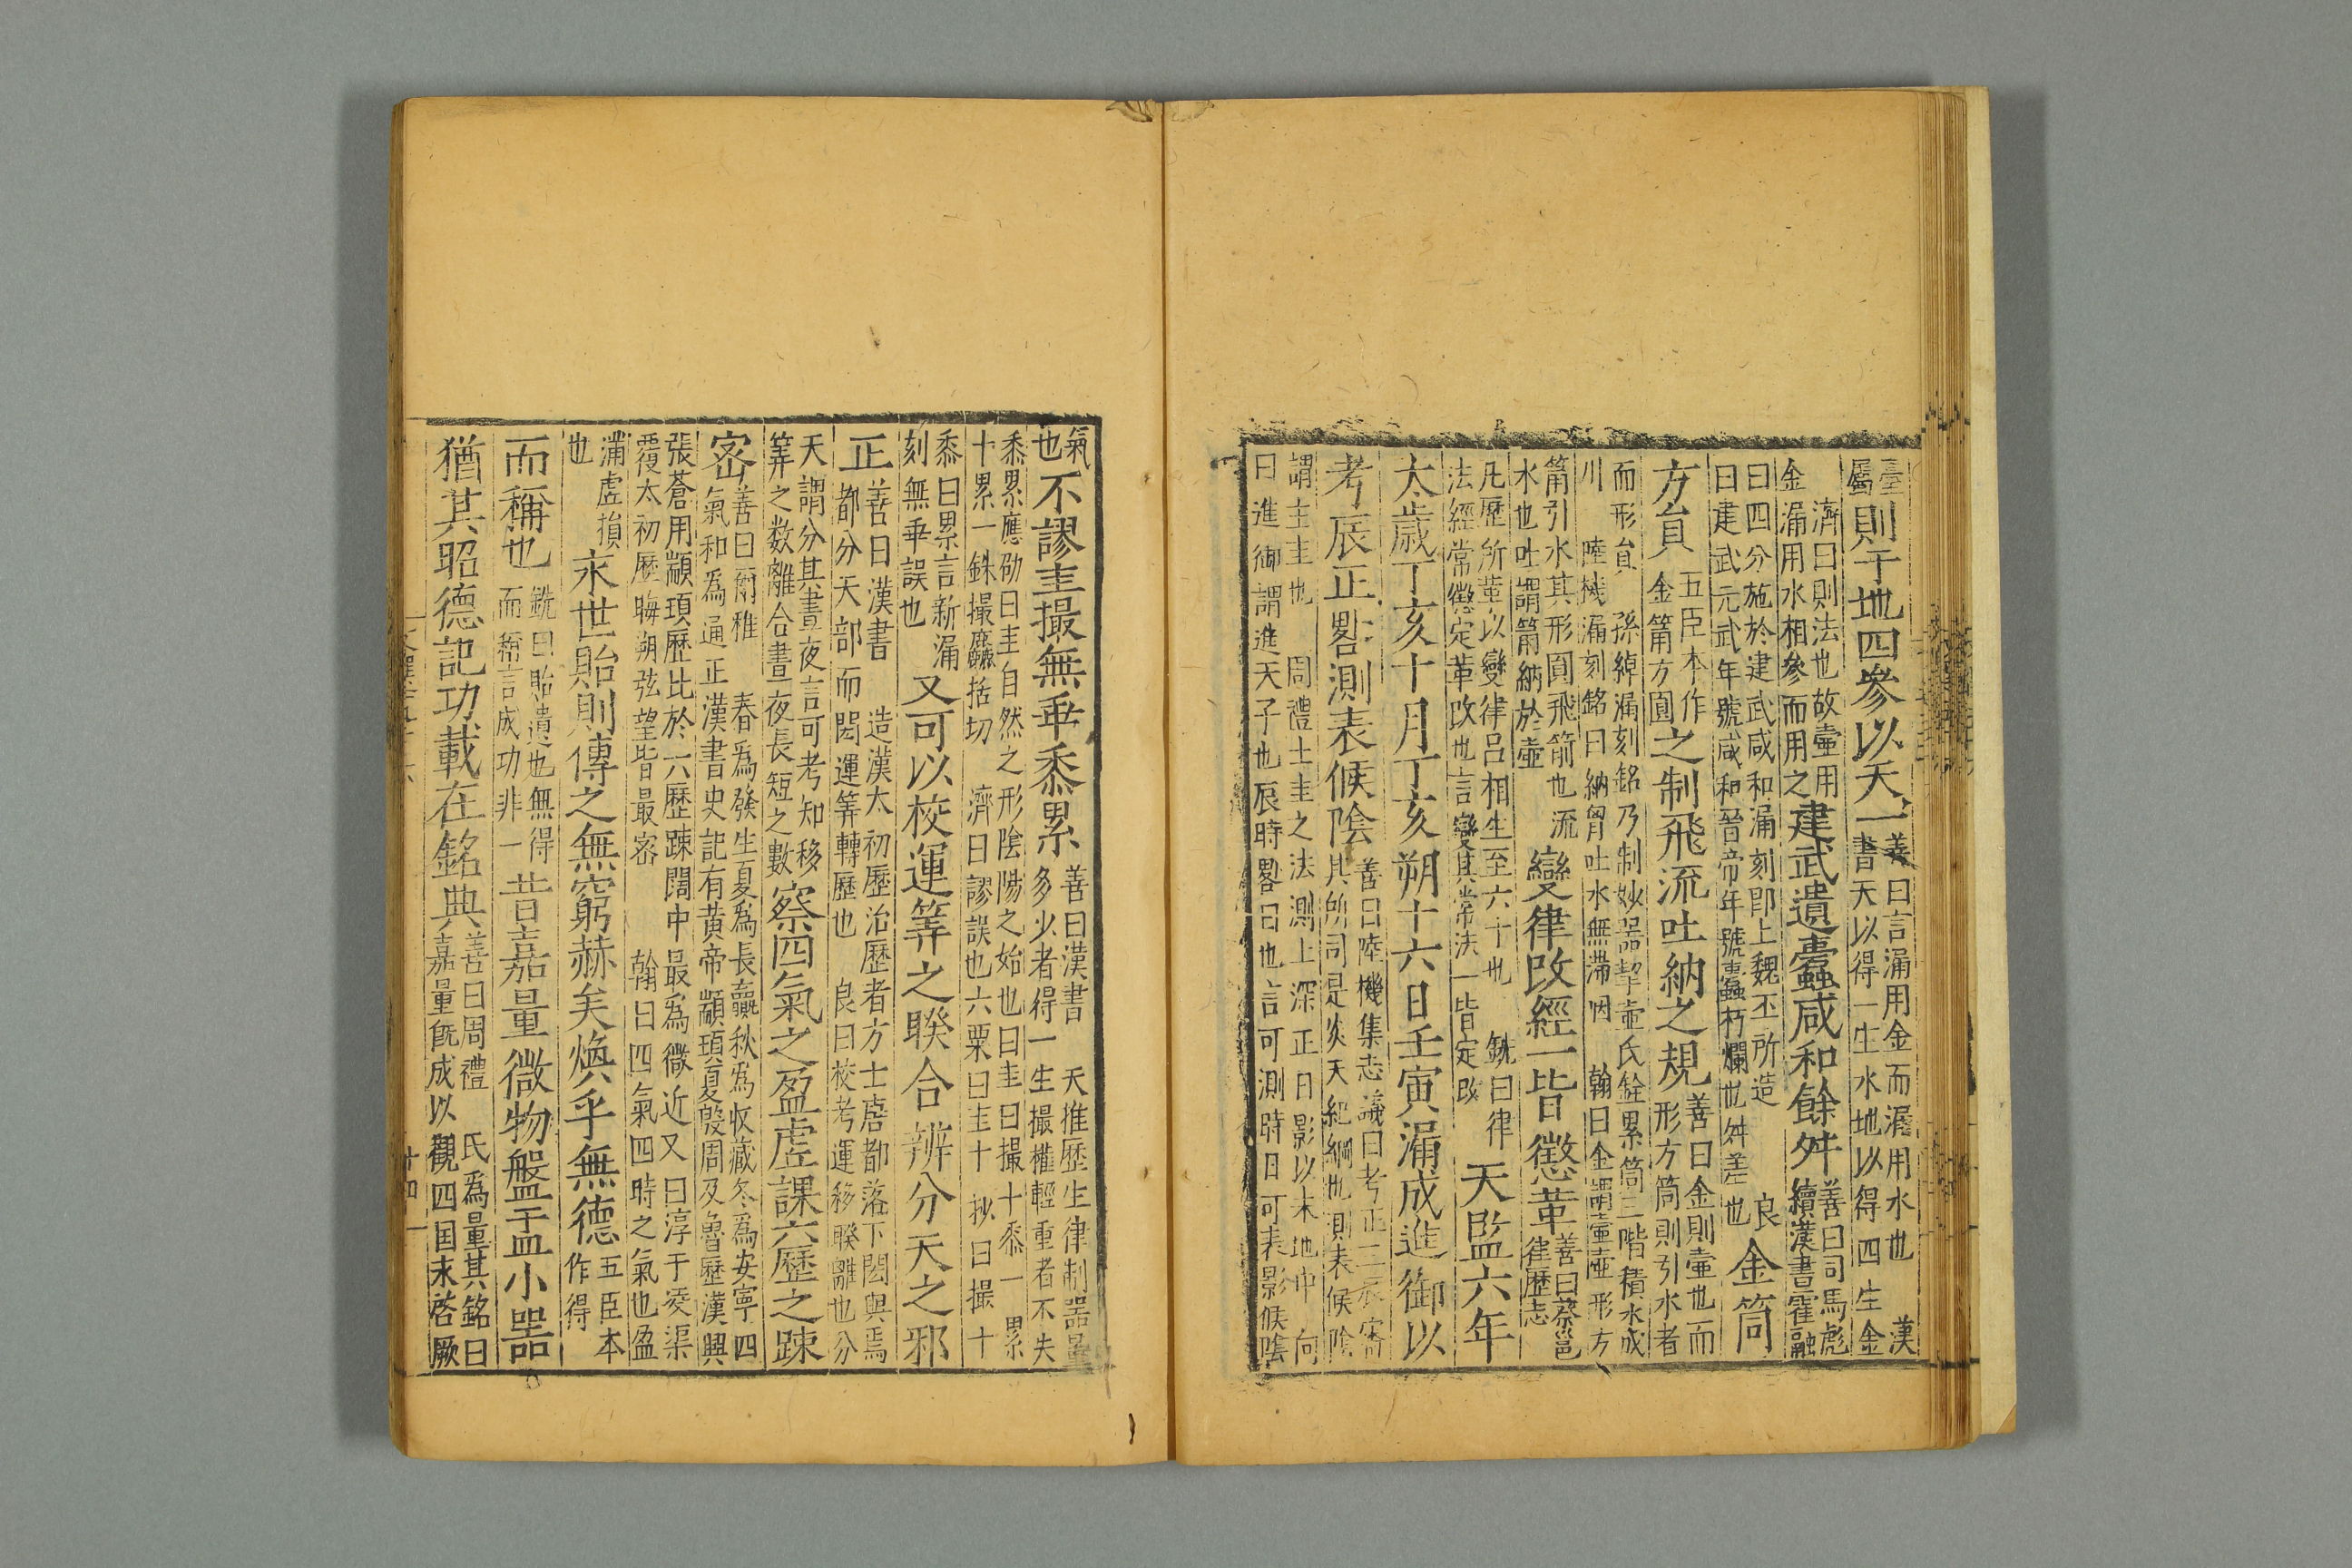 臺屬則于地四參以天一善曰言漏用金而漏用水也漢書天以得一生水地以得四生金
濟曰則法也故壷用金漏用水相參而用之建武遺蠹咸和餘舛善曰司馬彪續漢書霍融
曰四分施於建武咸和漏刻卽上魏丕所造良曰建武元武年號咸和晉帝年號蠹朽爛也舛差也金筒
方負五臣本作金筩方圓之制飛流吐納之規善曰金則壷也而形方筒則引水者
而形負孫綽漏刻銘乃制妙器挈壷氏銓累筒三階積水成川陸機漏刻銘曰納胷吐水無滯咽翰曰金謂壷壷形方
筩引水其形圓飛箭也流水也吐謂箭納於壷變律改經一皆懲革善曰蔡邕律歷志
凡歷所革以變律呂相生至六十也銑曰律法經常懲定革改也言變其常法一皆定改天監六年
太歲丁亥十月丁亥朔十六日壬寅漏成進御以
考辰正晷測表候陰善曰陸機集志議曰考正三辰審其所司是炎天紀綱也測表候陰
謂主圭也周禮土圭之法測土深正日影以求地中向曰進御謂進天子也辰時晷日也言可測時日可表影候陰
氣也不謬圭撮無乖黍累善曰漢書天推歷生律制器量多少者得一生撮權輕重者不失
黍累應劭曰圭自然之形陰陽之始也曰圭曰撮十黍一累十累一銖撮麤括切濟曰謬誤也六粟曰圭十抄曰撮十
黍曰累言新漏刻無乖誤也又可以校運筭之睽合辨分天之邪
正善曰漢書造漢太初歷治歷者方士唐都落下閎與焉都分天部而閎運筭轉歷也良曰校考運移睽離也分
天謂分其晝夜言可考知移筭之数離合晝夜長短之數察四氣之盈虛課六歷之踈
密善曰爾雅春爲發生夏爲長嬴秋爲收藏冬爲安寧四氣和爲通正漢書史記有黄帝顓頊夏殷周及魯歷漢興
張蒼用顓頊歷比於六歷踈闊中最爲微近又曰淳于凌渠覆太初歷晦朔弦望皆最密翰曰四氣四時之氣也盈
滿虛損也永世貽則傳之無窮赫矣煥乎無德五臣本作得
而稱也銑曰貽遺也無得而稱言成功非一昔嘉量微物盤盂小器
猶其昭德記功載在銘典善曰周禮氏爲量其銘曰嘉量旣成以觀四国永啓厥
廿四